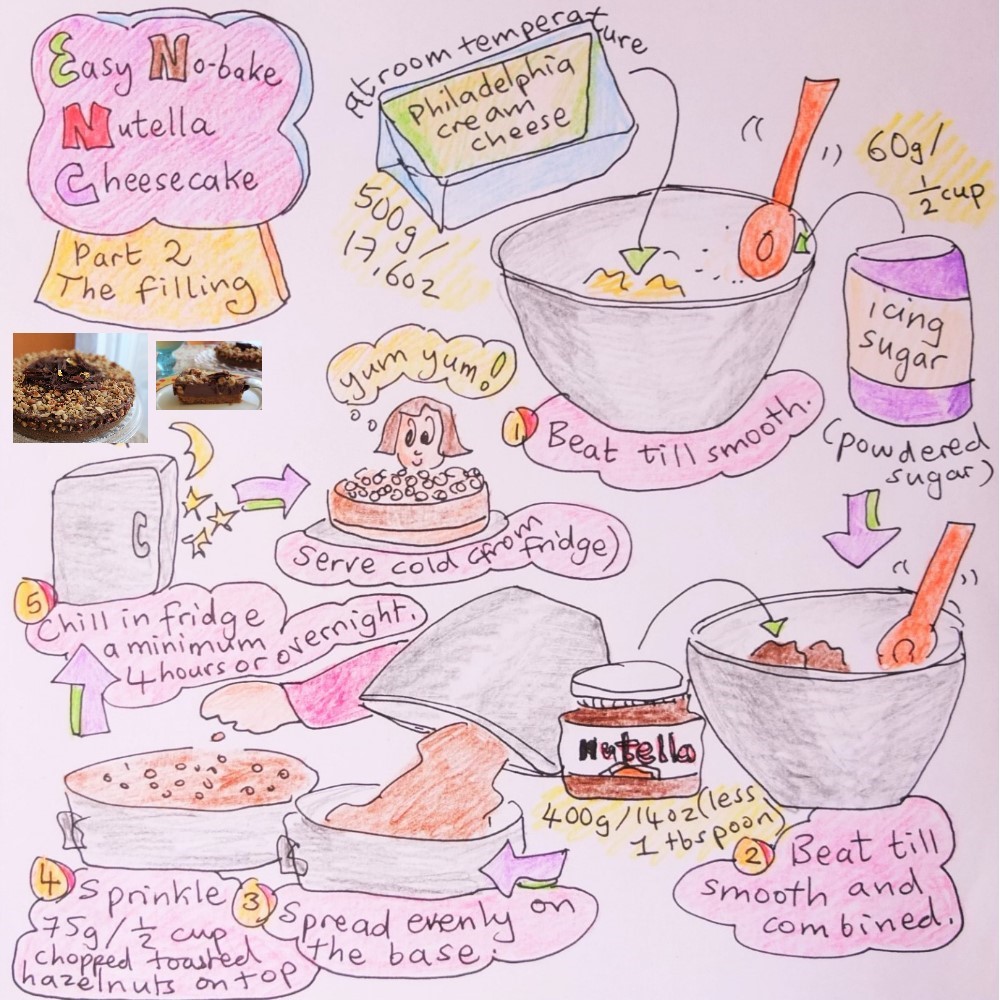 Easy No-bake
Nutella
Cheesecake
Part 2
The filling
At room temperature
Philadelphia
cream
cheese
500g/
17,6oz
60g/
½ cup
icing
sugar
(powdered
sugar)
1 Beat till smooth.
Nutella
400g/14oz (less
1 tbspoon)
2 Beat till
smooth and
combined.
3 Spread evenly on
the base.
4 Sprinkle
75g/½ cup
chopped toasted
hazelnuts on top
5 Chill in fridge
a minimum
4 hours or overnight.
yum yum!
serve cold (from
fridge)